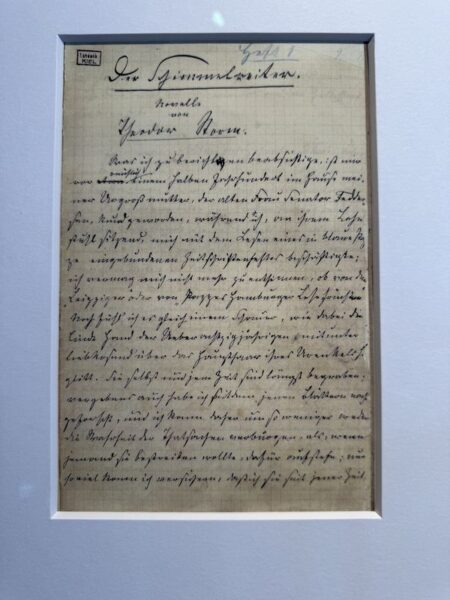 Heft 1
Der Schimmelreiter.
Novelle
von
Theodor Storm.
Was ich zu berichten beabsichtige, ist mir
reichlich
vor einem halben Jahrhundert im Hause mei-
ner Urgroßmutter, der alten Frau Senator Fedder-
sen, kund geworden, während ich, an ihrem Lehn-
stuhl sitzend, mich mit dem Lesen eines in blaue Pap-
pe eingebundenen Zeitschriftenheftes beschäftigte;
ich vermag mich nicht mehr zu entsinnen, ob von den
Leipziger oder von Pappes Hamburger Lesefrüchten.
Noch fühl' ich es gleich einem Schauer, wie dabei die
linde Hand der über achtzigjährigen mitunter
liebkosend über das Haupthaar ihres Urenkels hin-
glitt. Sie selbst und jene Zeit sind längst begraben;
vergebens auch habe ich seitdem jenen Blättern nach-
geforscht, und ich kann daher um so weniger weder
die Wahrheit der Thatsachen verbürgen, als, wenn
jemand sie bestreiten wollte, dafür aufstehen; nur
so viel kann ich versichern, daß ich sie seit jener Zeit,